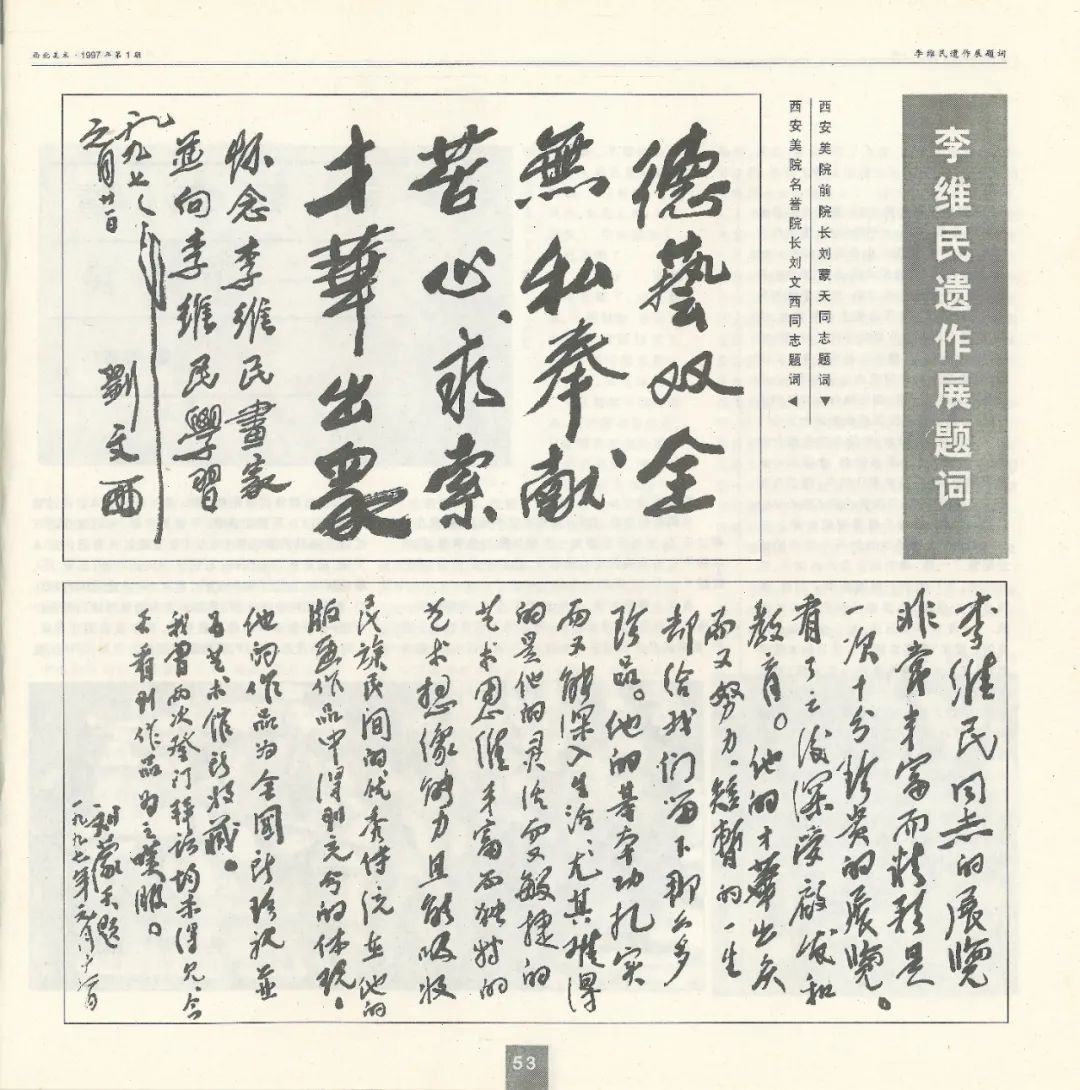 西北美术·1997年第1期
李维民遗作展题词
李维民遗作展题词
西安美院前院长刘蒙天同志题词▼
西安美院名誉院长刘文西同志题词
德藝双全
無私奉献
苦心求索
才華出眾
怀念李維民畫家
並向李維民學習
一九九七年
元月廿一日
劉文西
李维民同志的展覽
非常丰富而精彩是
一次十分珍贵的展覽。
看了之后深受啟发和
教育。他的才華出众
而又努力、短暫的一生
却给我们留下那么多
珍品。他的基本功扎实
而又能深入生活、尤其难得
的是他的灵活而又敏捷的
艺术思维丰富而独特的
艺术想像能力且能吸收
民族民间的优秀传统在他的
版画作品中得到充分的体现。
他的作品为全國所珍视並
为美术馆所收藏。
我曾两次登门拜访均未得见、今
天看到作品为之嘆服。
刘蒙天题
一九九七年元月十六日
53